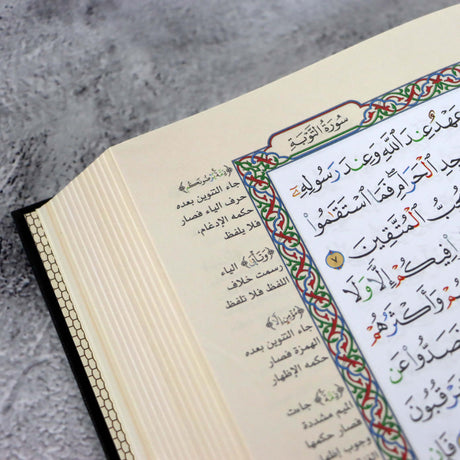 سُورَةُ التَّوْبَةِ
عَهْدٌ عِندَ اللَّهِ وَعِندَ رَسُولِهِۦٓ
الْحَرَامِ ۖ فَمَا اسْتَقَـٰمُوا۟
الْمُتَّقِينَ ٧
فِيكُمْ إِلًّا وَلَا
وَأَكْثَرُهُمْ
فَصَدُّوا۟ عَن
يَرْقُبُونَ
جاء التنوين بعده
حرف الياء فصار
حكمه الإدغام،
فلا يلفظ
﴿وَتَأْبَىٰ﴾ الياء
رسمت خلاف
اللفظ فلا تلفظ
جاء التنوين بعده
الهمزة فصار
حكمه الإظهار
جاءت
الميم مشددة
فصار حكمها
وجوب إظهار